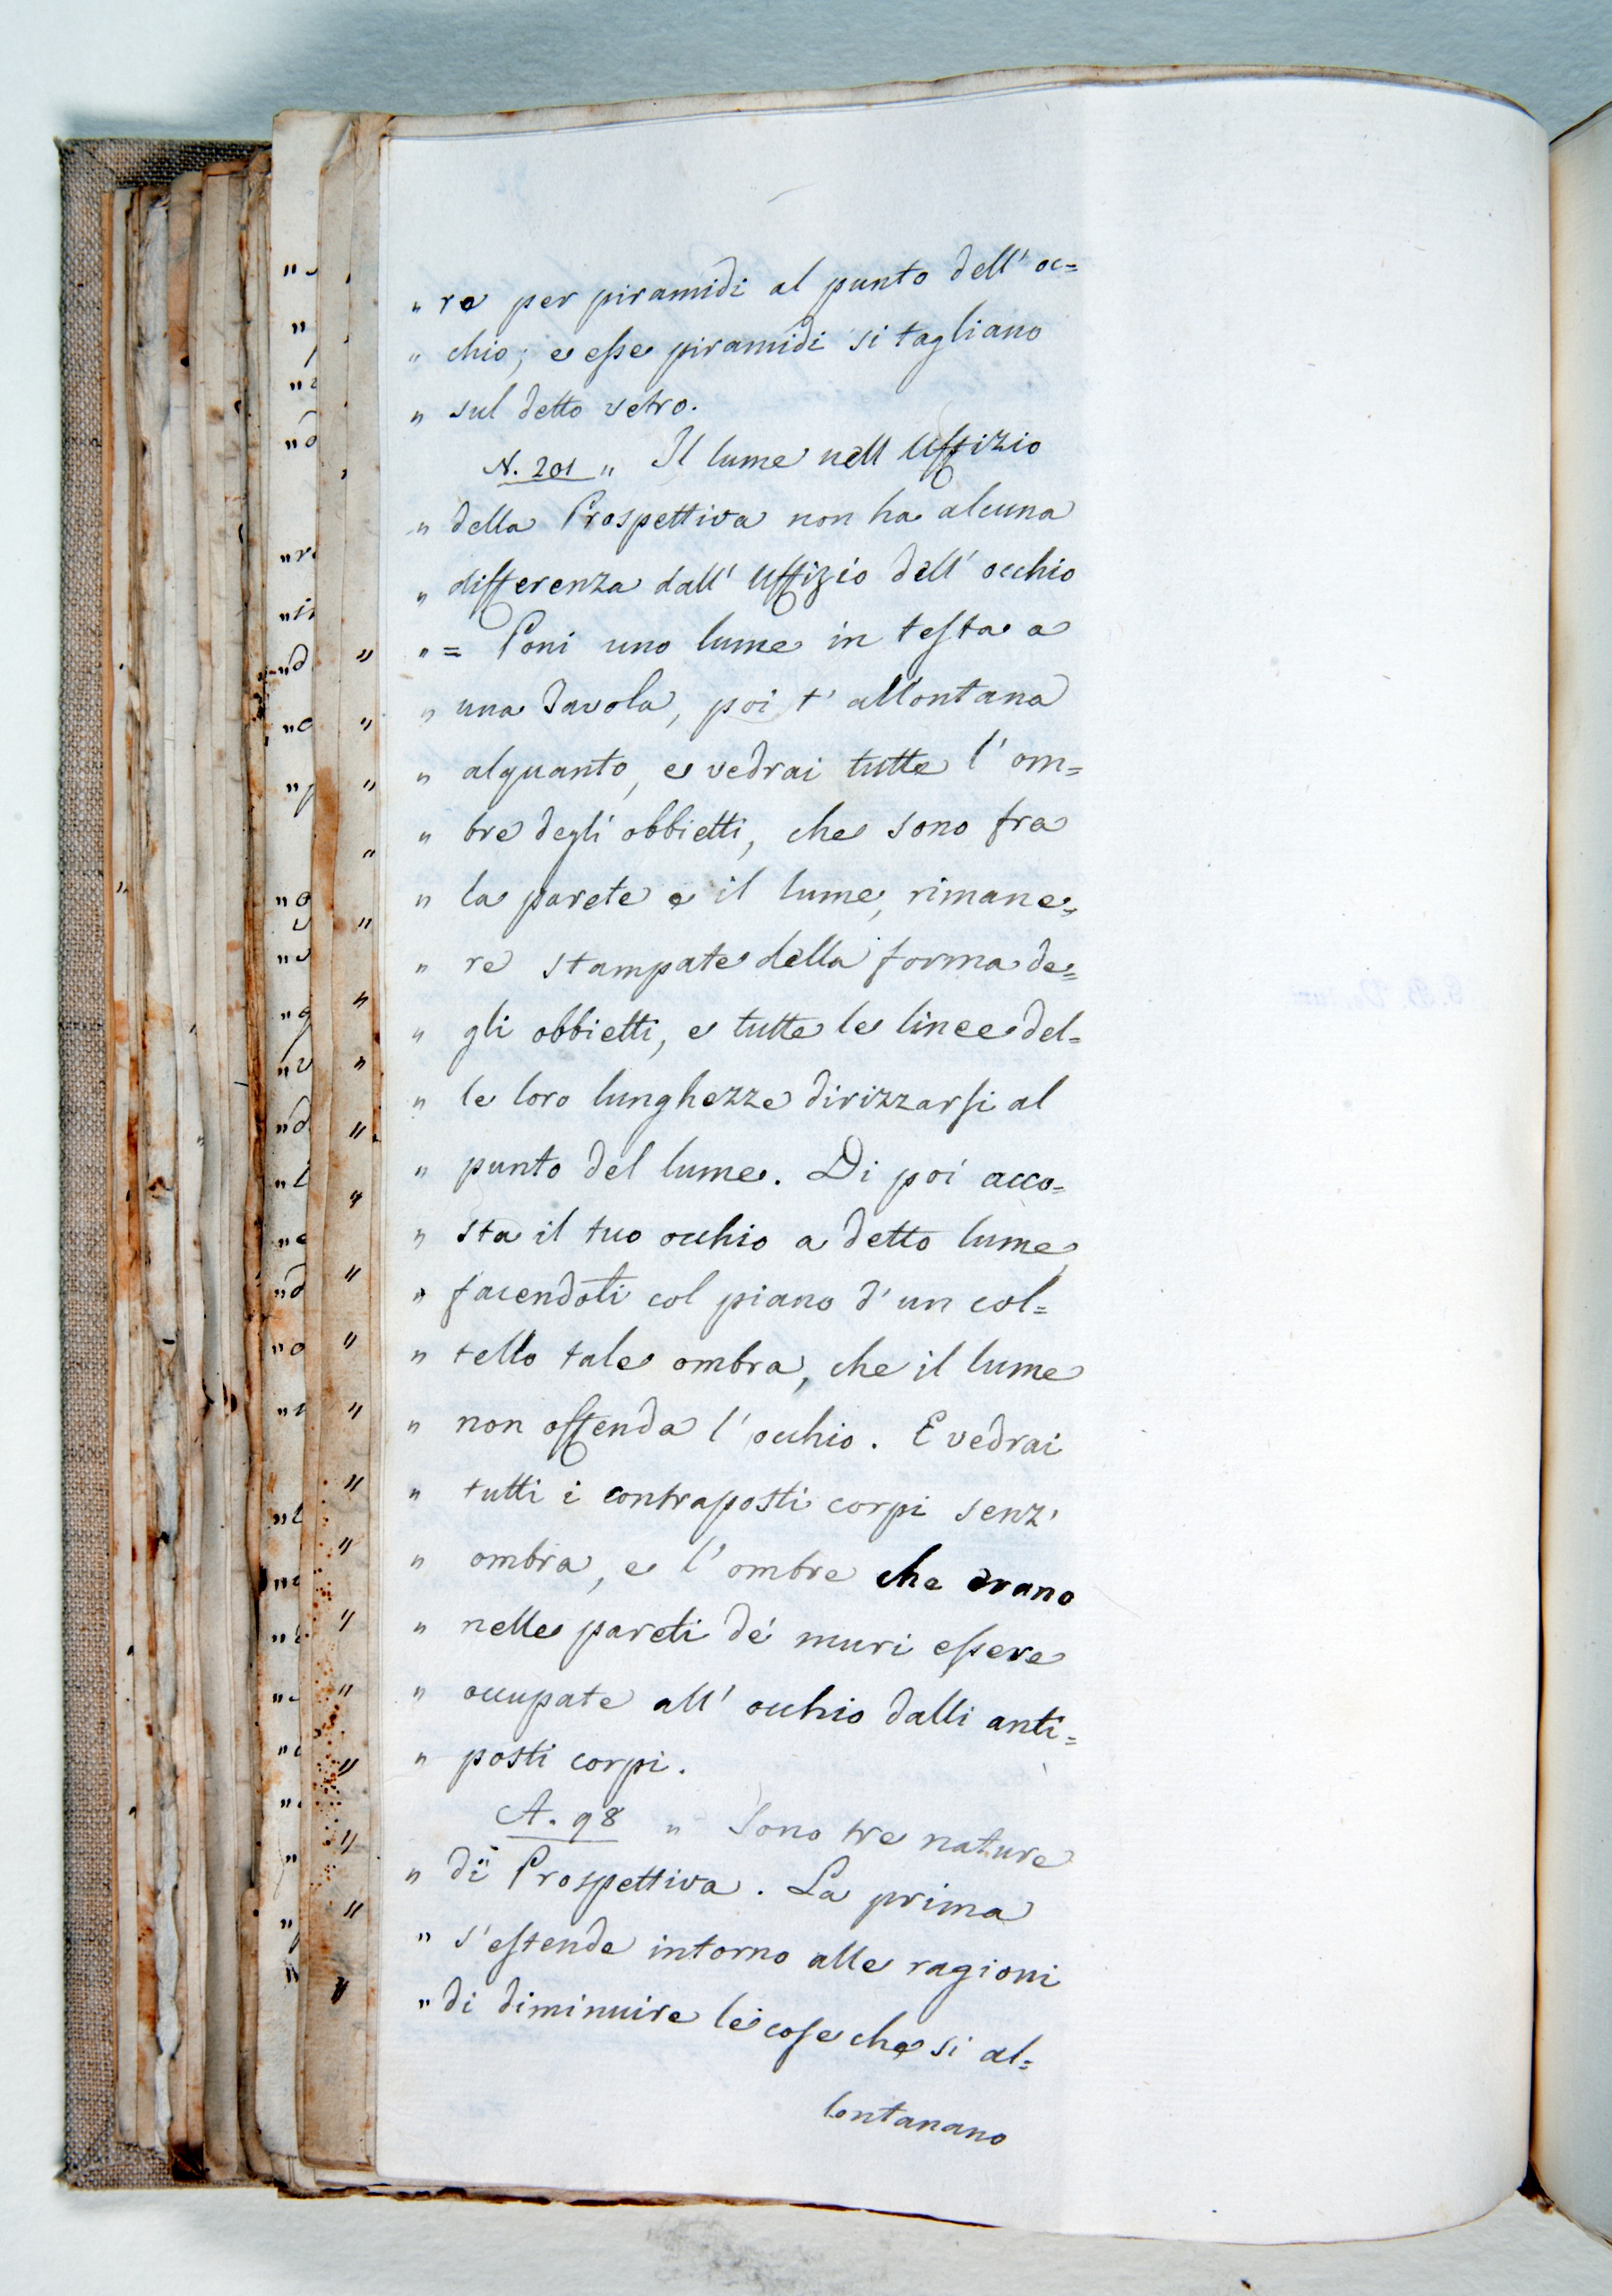 " re per piramidi al punto dell' oc=
" chio; e esse piramidi si tagliano
" sul detto vetro.
N. 201 " Il lume nell Uffizio
" della Prospettiva non ha alcuna
" differenza dall' Uffizio dell' occhio
" = Poni uno lume in testa a
" una Tavola, poi t' allontana
" alquanto, e vedrai tutte l' om=
" bre degli obbietti, che sono fra
" la parete e il lume, rimane=
" re stampate della forma de=
" gli obbietti, e tutte le linee del=
" le loro lunghezze dirizzarsi al
" punto del lume. Di poi acco=
" sta il tuo occhio a detto lume,
" facendoti col piano d' un col=
" tello tale ombra, che il lume
" non offenda l' occhio. E vedrai
" tutti i contraposti corpi senz'
" ombra, e l' ombre che erano
" nelle pareti de' muri essere
" occupate all' occhio dalli anti=
" posti corpi.
A. 98 " Sono tre nature
" di Prospettiva. La prima
" s' estende intorno alle ragioni
" di diminuire le cose che si al=
lontanano